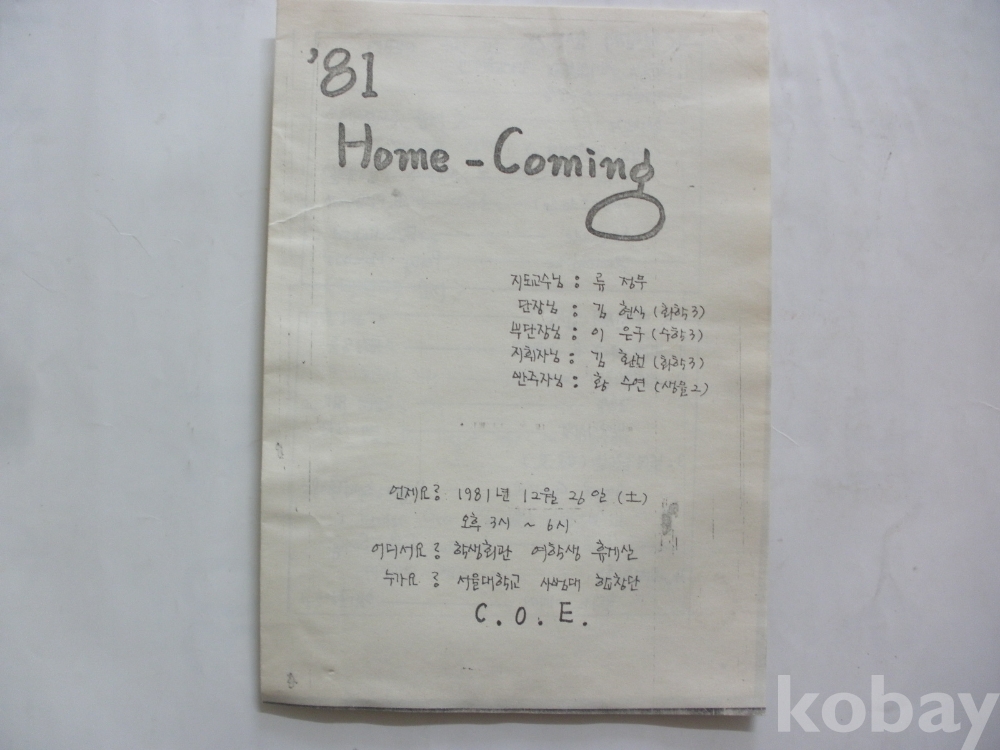 '81
Home - Coming
지도교수님 : 류 정무
단장님 : 김 현식 (화학3)
부단장님 : 이 은구 (수학3)
지휘자님 : 김 환선 (화학3)
반주자님 : 황 수연 (생물2)
언제요? 1981년 12월 26일 (土)
오후 3시 ~ 6시
어디서요? 학생회관 여학생 휴게실
누가요? 서울대학교 사범대 합창단
C. O. E.
kobay